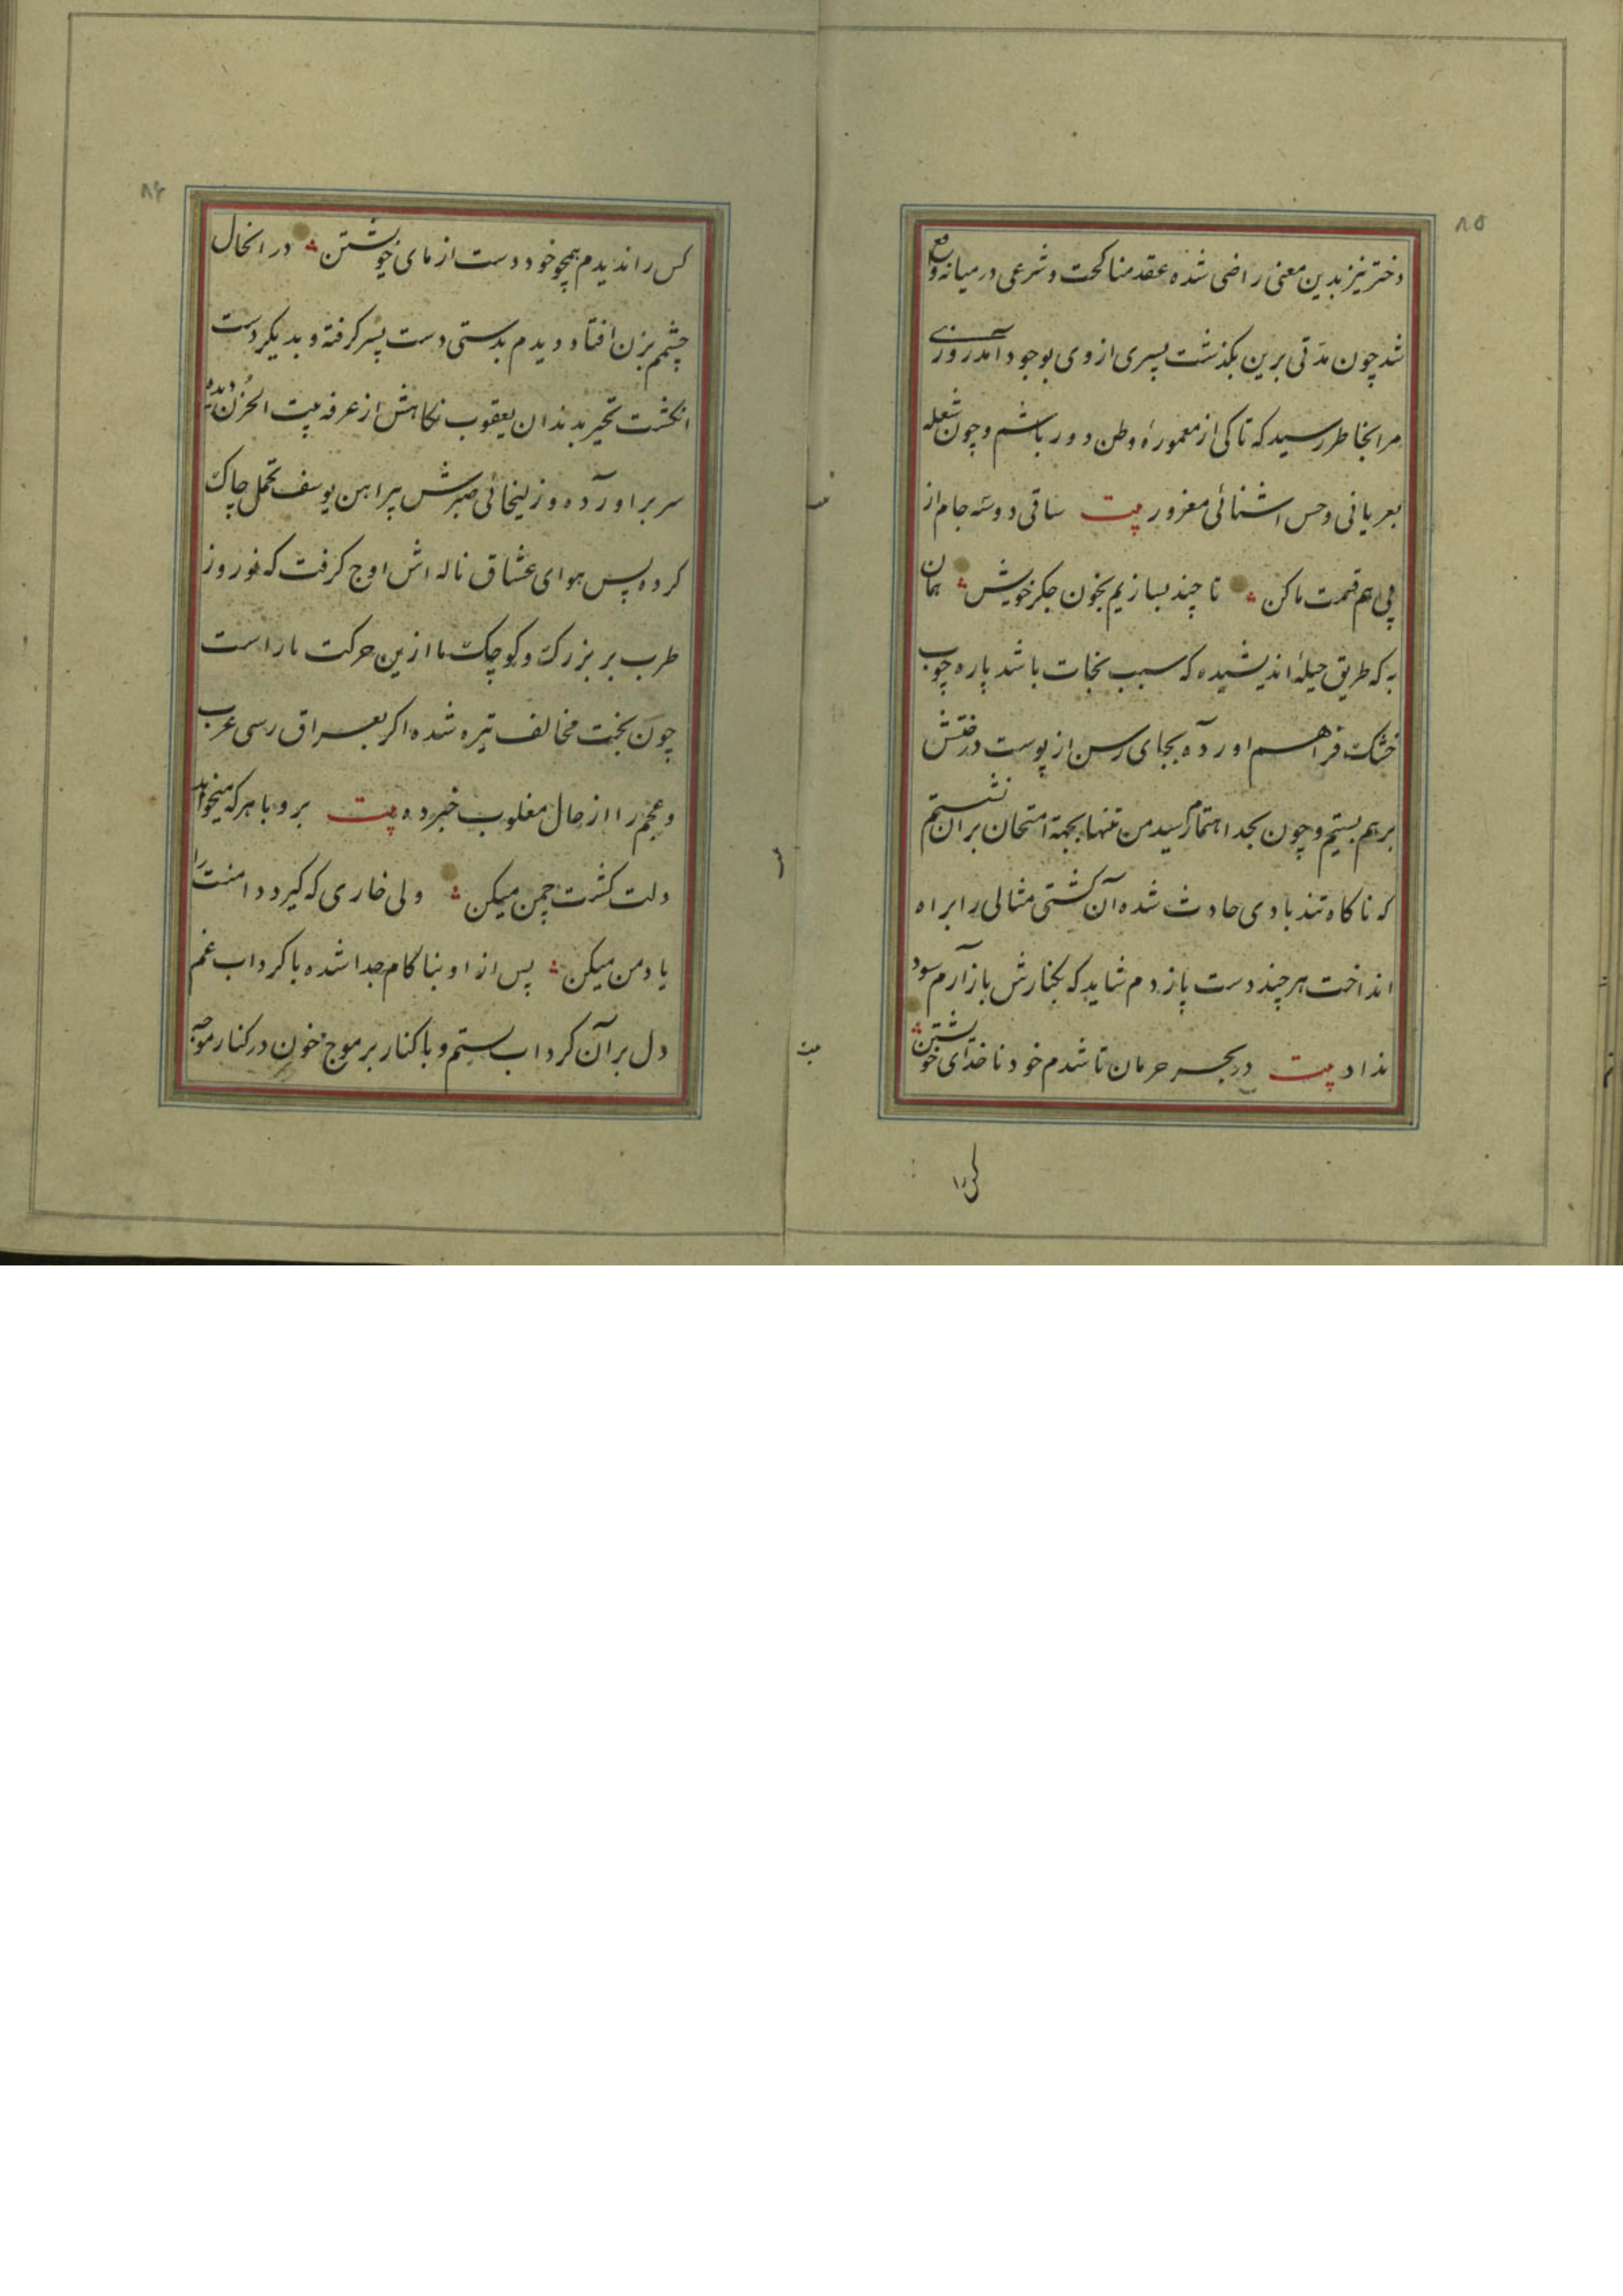 ۸۵
دختر نیز بدین معنی راضی شده عقد مناکحت و شرعی در میانه واقع
شد چون مدّتی برین بکذشت پسری از وی بوجود آمد روزی
مرا بخاطر رسید که تا کی از معمورهٔ وطن دور باشم و چون شعله
بعریانی و خس اشنائی مغرور بیت ساقی دوسه جام از
پی هم قسمت ما کن تا چند بسازیم بخون جکر خویش همان
به که طریق حیلهٔ اندیشیده که سبب نجات باشد پاره چوب
خشک فراهم اورده بجای رسن از پوست درختش
بر هم بستیم و چون بحد اهتمام رسید من تنها بجهة امتحان بران نشستم
که ناکاه تند بادی حادث شده آن کشتی مثالی را براه
انداخت هر چند دست پا زدم شاید که بکنارش باز آرم سود
نداد بیت در بحر حرمان تا شدم خود ناخدای خویشتن
کس را
۸۶
کس را ندیدم همچو خود دست ازمای خویشتن در انحال
چشمم بزن افتاد دیدم بدستی دست پسر کرفته و بدیکر دست
انکشت تحیر بدندان یعقوب نکاهش از غرفه بیت الحزن دیده
سر براورده و زلیخائی صبرش پیراهن یوسف تحمل چاک
کرده پس هوای عشاق ناله اش اوج کرفت که نوروز
طرب بر بزرک و کوچک ما ازین حرکت ناراست
چون بخت مخالف تیره شده اکر بعراق رسی عرب
و عجم را از حال مغلوب خبر ده بیت برو با هر که میخواهد
دلت کشت چمن میکن ولی خاری که کیرد دامنت را
یاد من میکن پس از او بناکام جدا شده با کرداب غم
دل بر آن کرداب بستم و با کنار بر موج خون در کنار موجه